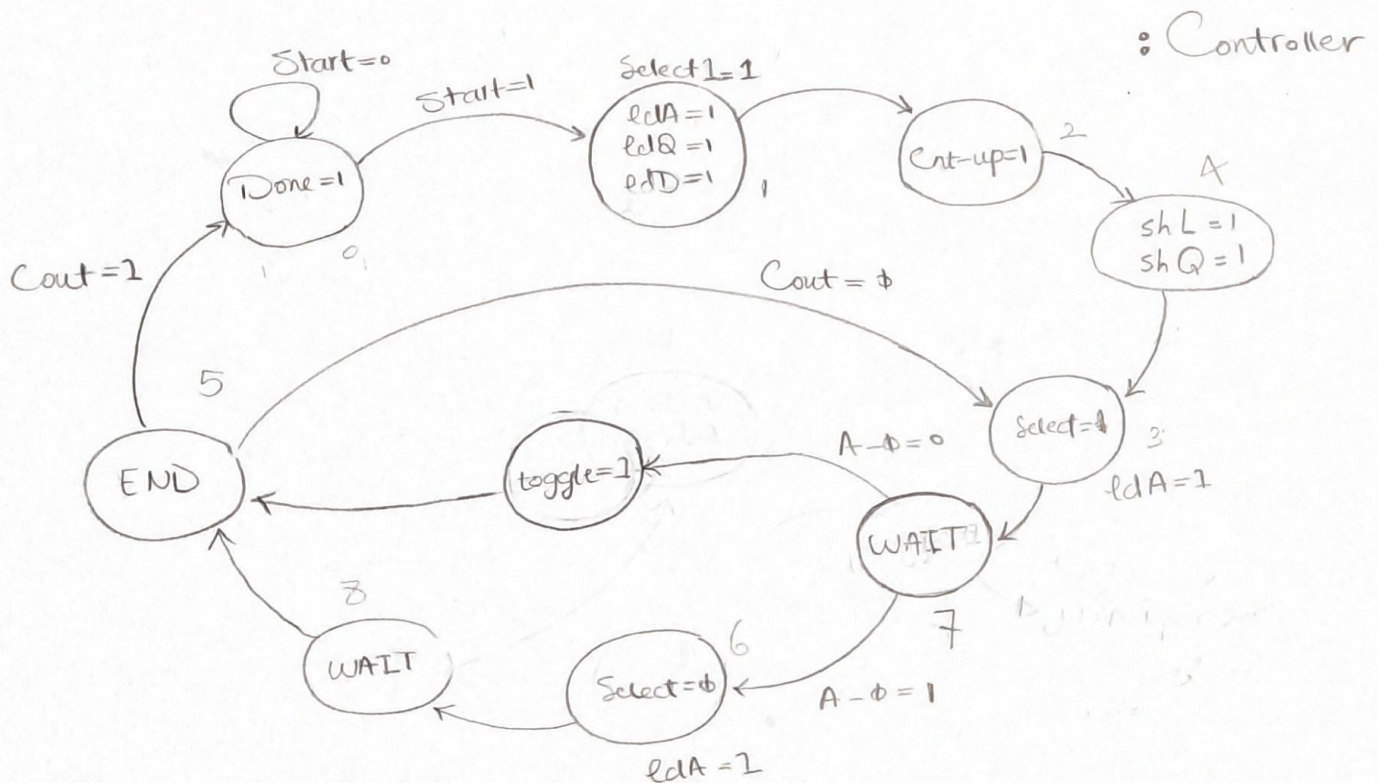 : Controller
Start=0
Start=1
Select1=1
ldA=1
ldQ=1
ldD=1
1
Cnt-up=1
2
4
shL=1
shQ=1
Done=1
0
Cout=1
Cout=ϕ
5
END
toggle=1
A-ϕ=0
Select=1
3
ldA=1
WAIT
7
A-ϕ=1
6
Select=ϕ
ldA=1
8
WAIT